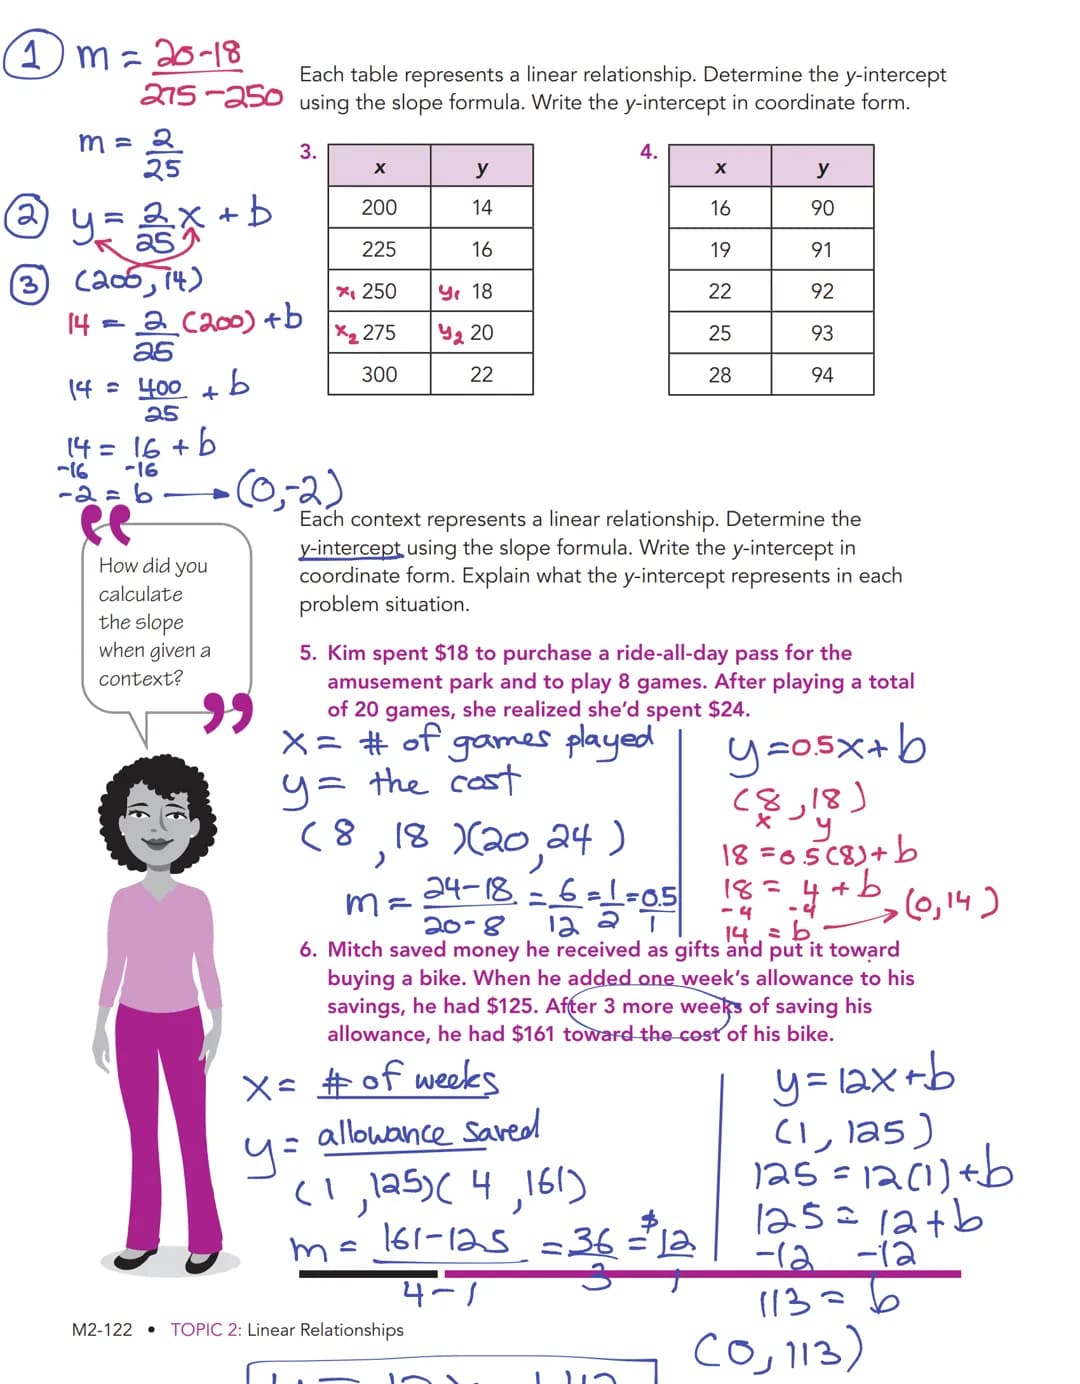 1 m = 20-18
275-250
m = 2
25
2 y = 2x + b
25
3 (200, 14)
14 = 2 (200) + b
25
14 = 400 + b
25
14 = 16 + b
-16 -16
-2 = b → (0,-2)
Each table represents a linear relationship. Determine the y-intercept
using the slope formula. Write the y-intercept in coordinate form.
3.
x y
200 14
225 16
x₁ 250 y₁ 18
x₂ 275 y₂ 20
300 22
4.
x y
16 90
19 91
22 92
25 93
28 94
Each context represents a linear relationship. Determine the
y-intercept using the slope formula. Write the y-intercept in
coordinate form. Explain what the y-intercept represents in each
problem situation.
“
How did you
calculate
the slope
when given a
context?
”
5. Kim spent $18 to purchase a ride-all-day pass for the
amusement park and to play 8 games. After playing a total
of 20 games, she realized she'd spent $24.
x = # of games played
y = the cost
(8, 18)(20, 24)
m = 24-18 = 6 = 1 = 0.5
20-8 12 2 1
y = 0.5x + b
(8, 18)
x y
18 = 0.5(8) + b
18 = 4 + b
-4 -4
14 = b → (0, 14)
6. Mitch saved money he received as gifts and put it toward
buying a bike. When he added one week's allowance to his
savings, he had $125. After 3 more weeks of saving his
allowance, he had $161 toward the cost of his bike.
x = # of weeks
y = allowance saved
(1, 125)(4, 161)
m = 161-125 = 36 = $12
4-1 3 1
y = 12x + b
(1, 125)
125 = 12(1) + b
125 = 12 + b
-12 -12
113 = b
(0, 113)
M2-122 • TOPIC 2: Linear Relationships